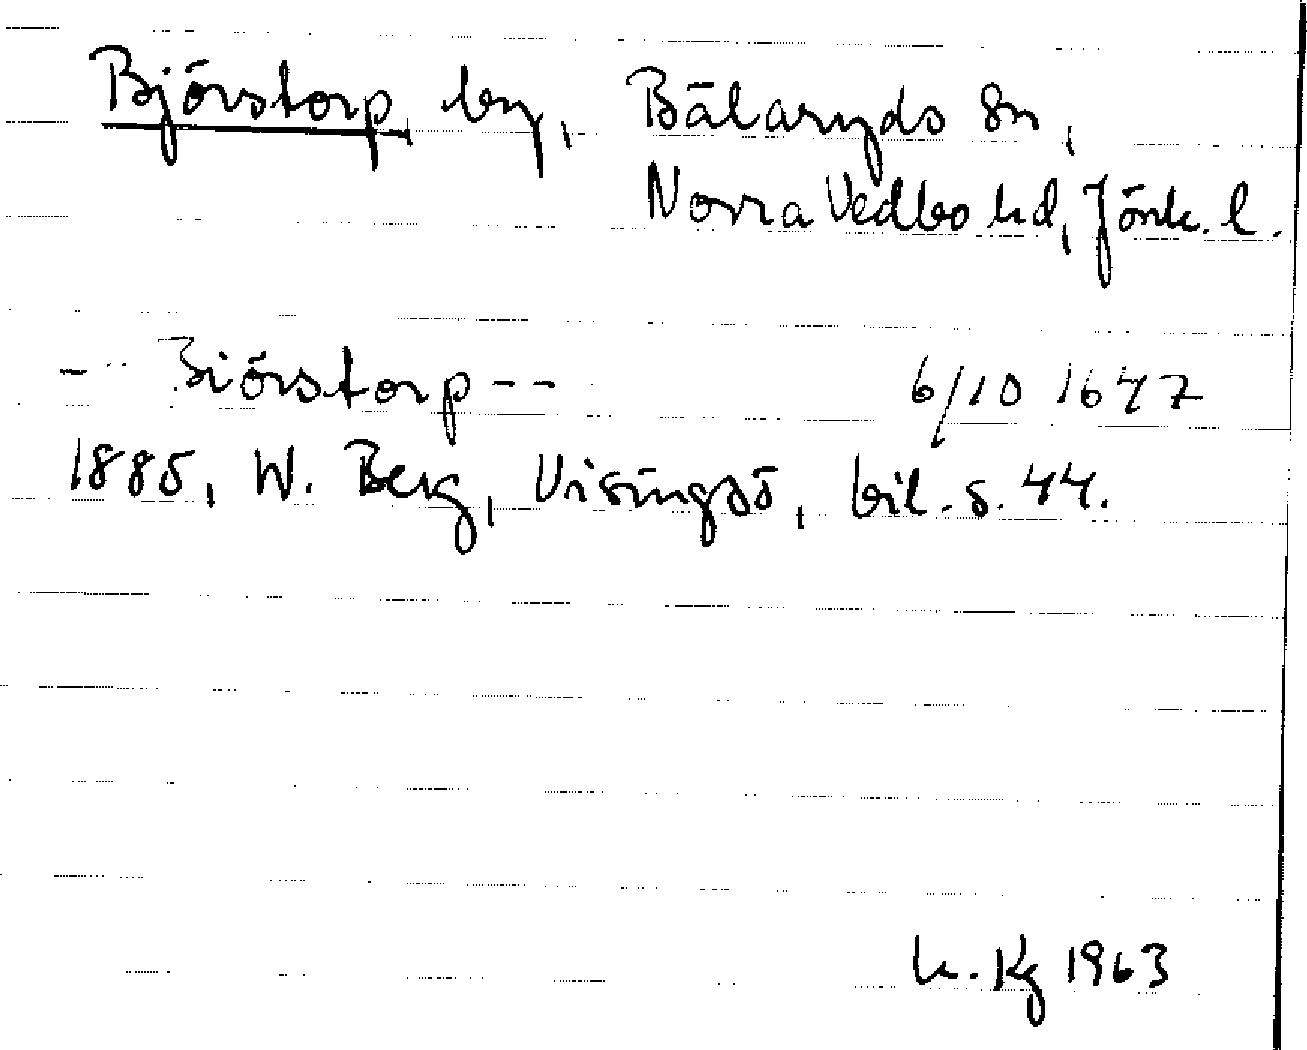 Björstorp by, Bälaryds sn,
Norra Vedbo hd, Jönk. l.
- -- Biörstorp -- 6/10 1647
1885, W. Berg, Visingsö, bil. s. 44.
K. Kg 1963